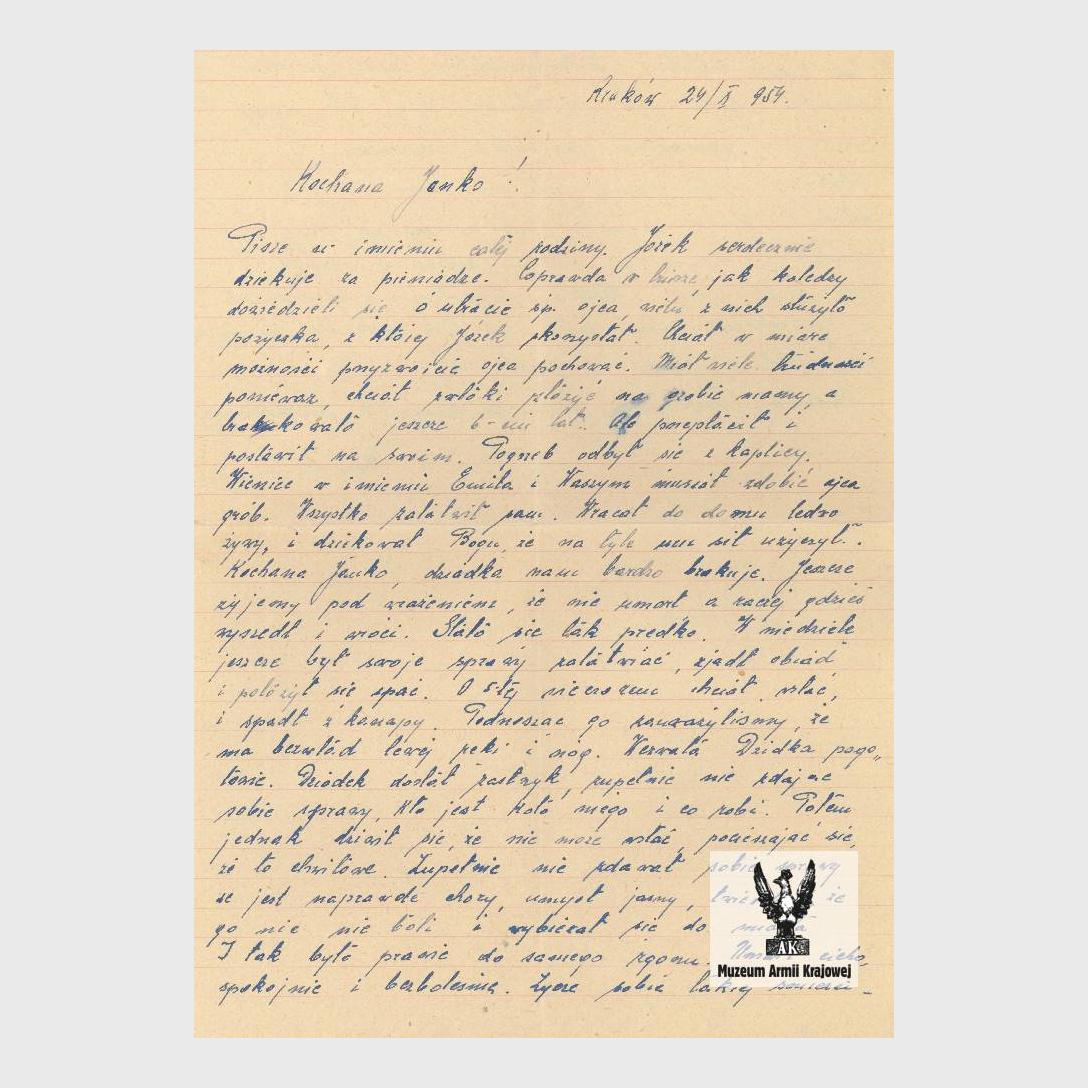 Kraków 24/X 954.
Kochana Janko!
Pisze w imieniu całej rodziny. Józek serdecznie
dziekuje za pieniadze. Coprawda w biurze, jak koledzy
dowiedzieli sie o utracie śp. ojca, wielu z nich słuzyło
pozyczka, z której Józek skorzystał. Chciał w miare
mozności przyzwoicie ojca pochować. Miał wiele trudności
poniewaz, chciał zwłoki złozyć na grobie mamy, a
brakowało jeszcze 6-ciu lat. Ale przepłacił i
postawił na swoim. Pogrzeb odbył sie z kaplicy.
Wieniec w imieniu Emila i Waszym musiał zdobić ojca
grób. Wszystko załatwił sam. Wracał do domu ledwo
zywy, i dziekował Bogu, ze na tyle mu sił uzyczył.
Kochana Janko, dziadka nam bardzo brakuje. Jeszcze
zyjemy pod wrazeniem, ze nie umarł a raczej gdzieś
wyszedł i wróci. Stało sie tak predko. W niedziele
jeszcze był swoje sprawy załatwiać, zjadł obiad
i połozył sie spać. O 5-tej wieczorem chciał wstać,
i spadł z kanapy. Podnoszac go zauwazylismy, ze
ma bezwład lewej reki i nóg. Wezwała Dzidka pogo„
towie. Dziadek dostał zastrzyk, zupełnie nie zdajac
sobie sprawy, kto jest koło niego i co robi. Potem
jednak dziwił sie, ze nie moze wstać, pocieszajac sie,
ze to chwilowe. Zupełnie nie zdawał sobie sprawy
ze jest naprawde chory, umysł jasny, ze
go nic nie boli i wybierał sie do miasta
I tak było prawie do samego zgonu. Umarł cicho,
spokojnie i bezboleśnie. Zycze sobie takiej śmierci -
AK
Muzeum Armii Krajowej